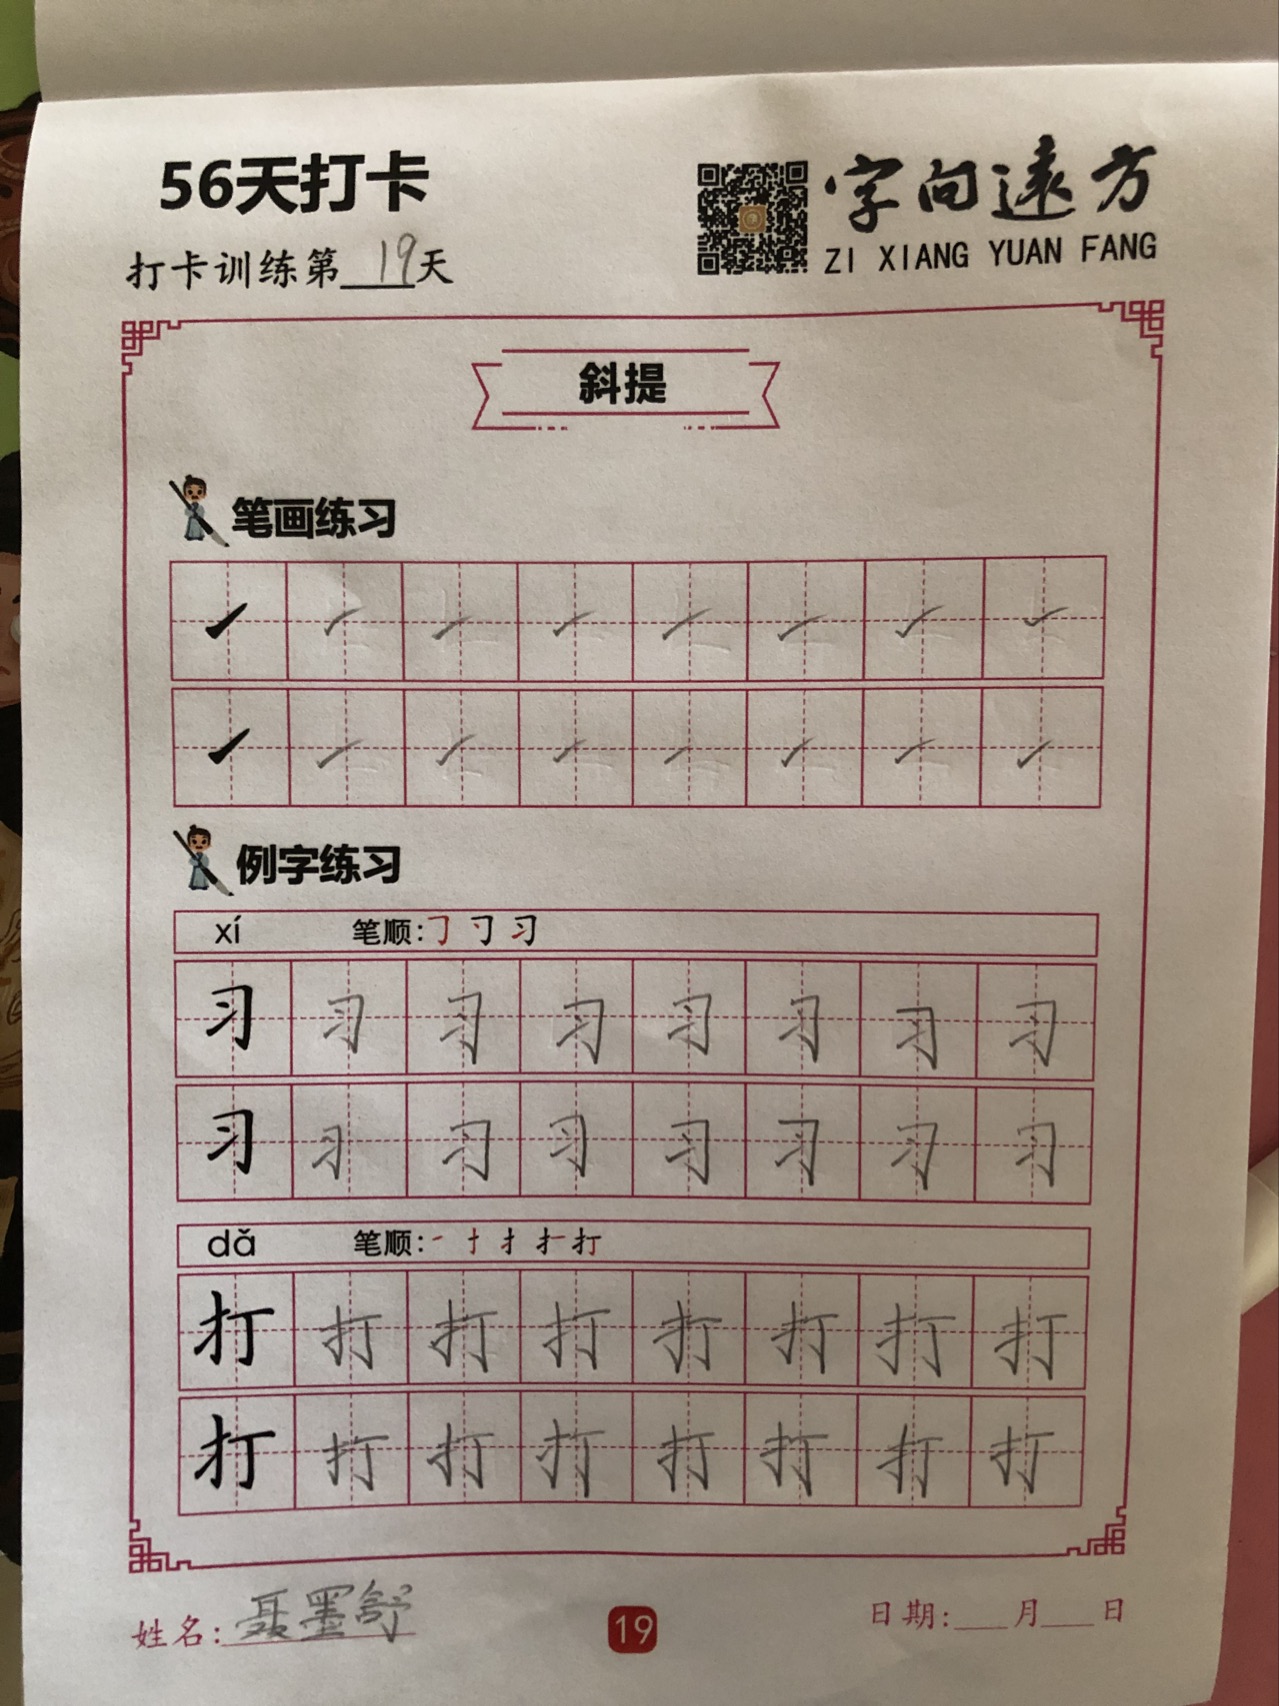 56天打卡
字向遠方
ZI XIANG YUAN FANG
打卡训练第19天
斜提
笔画练习
例字练习
xí 笔顺:㇆ 习
习 习 习 习 习 习 习 习
习 习 习 习 习 习 习 习
dǎ 笔顺:一 十 扌 打
打 打 打 打 打 打 打 打
打 打 打 打 打 打 打 打
姓名:聂墨舒
19
日期:___月___日